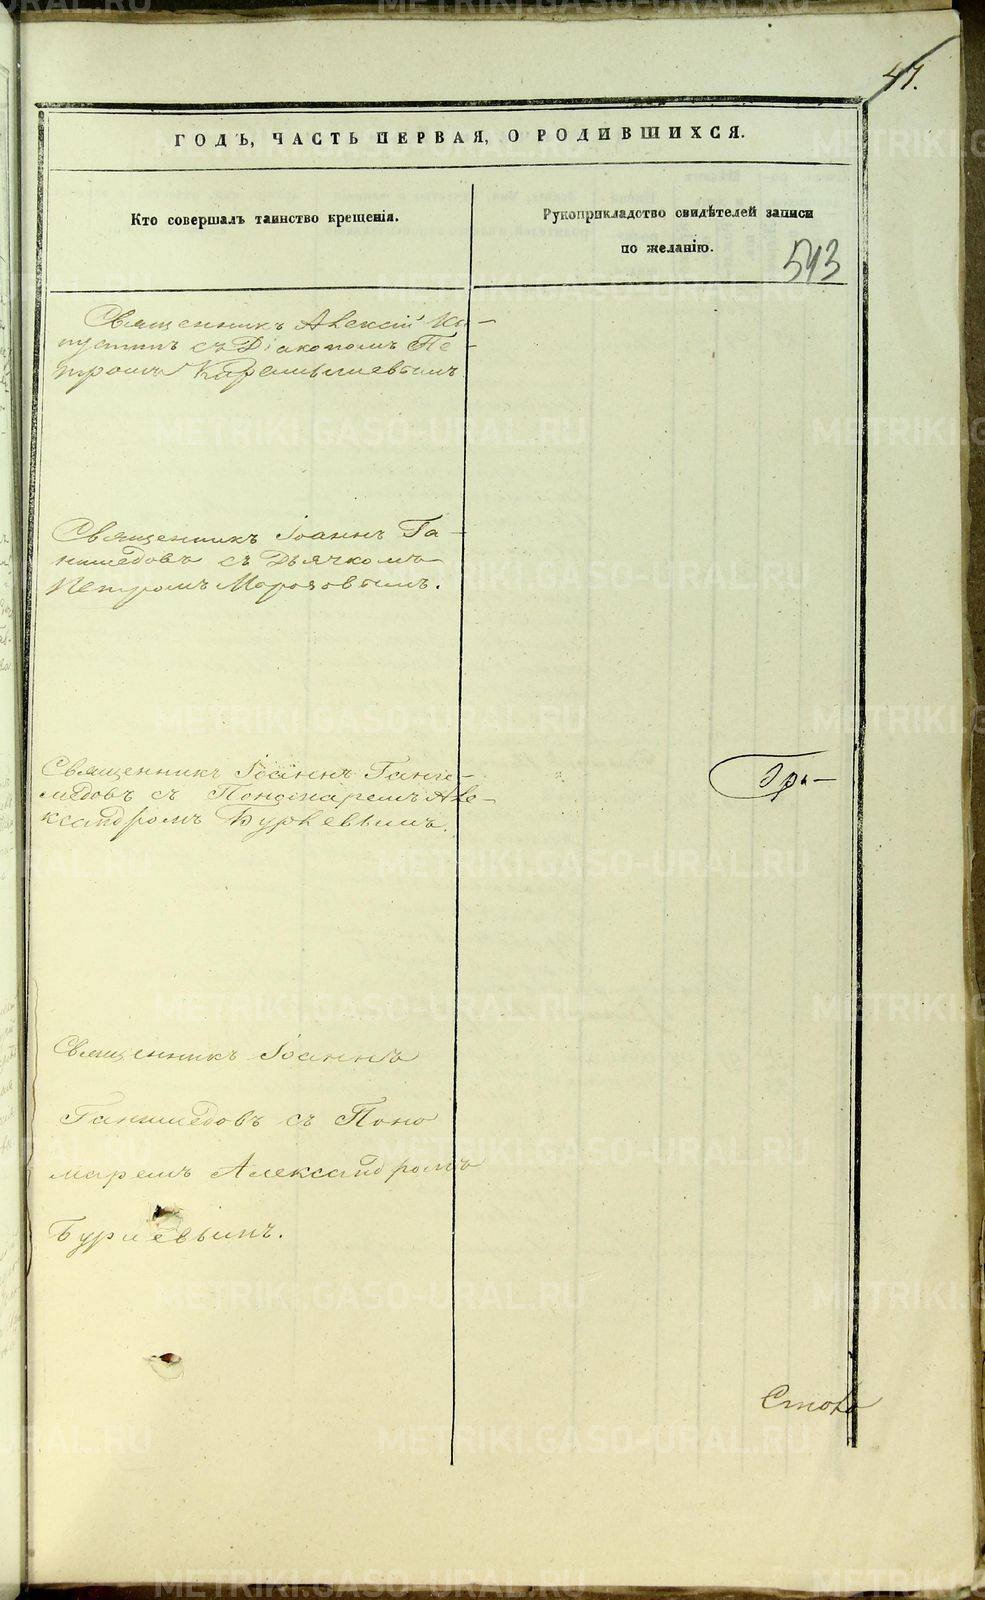 47.
ГОДЪ, ЧАСТЬ ПЕРВАЯ, О РОДИВШИХСЯ.
Кто совершалъ таинство крещенія.
Рукоприкладство свидѣтелей записи
по желанію.
543
Священникъ Алексій Ка-
пустинъ съ Діакономъ Пе-
тромъ Карамышевымъ
Священникъ Іоаннъ Га-
нимедовъ съ Дьячкомъ
Петромъ Морозовымъ.
Священникъ Іоаннъ Гани-
медовъ съ Пономаремъ Але-
ксандромъ
Гра-
Священникъ Іоаннъ
Ганимедовъ съ Поно
маремъ Александромъ
METRIKI.GASO-URAL.RU